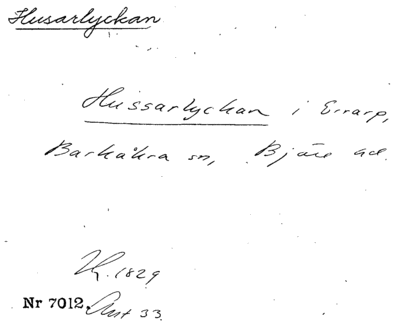 Husarlyckan
Hussarlyckan i Errarp,
Barkåkra sn, Bjäre hd.
1829
Nr 7012. Ant 33.